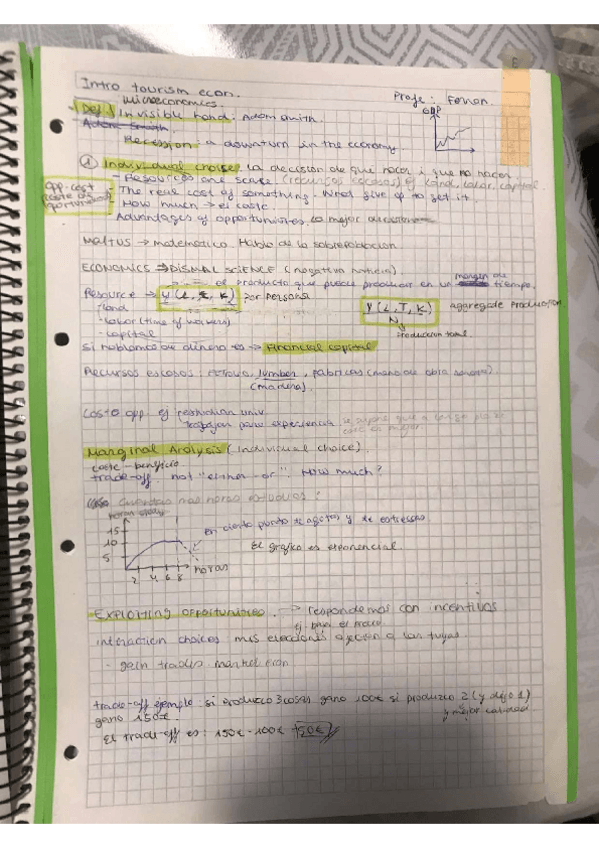 Intro tourism econ.
Profe: Ferran.
microeconomics.
GDP
Def / Invisible hand: Adam Smith.
Adam Smith
Recession: a downturn in the economy
① Individual choice: la decision de que hacer i que no hacer
- Resources are scarce (recursos escasos) ej land, labor, capital.
Opp. cost
(coste de
oportunidad)
- The real cost of something. What give up to get it.
- How much → el coste
Advantages of opportunities. la mejor decision
Maltus → matematico. Hablo de la sobrepoblacion
ECONOMICS → DISMAL SCIENCE (negativa noticia)
→ el producto que puede producir en un margen de tiempo.
Resource → Y(L, T, K) por persona
Y(L, T, K) aggregade production
N
produccion total
- land
- labor (time of workers)
- capital
si hablamos de dinero es → financial capital
Recursos escasos: Petroleo, lumber, fabricas (mano de obra )
(madera)
Costo opp. ej estudiar univ
trabajar para experiencia se supone que a largo plazo
es mejor
Marginal Analysis (individual choice)
coste-beneficio
trade-off. not "either-or". How much?
Cuantas mas horas estudies?
horas study
15
10
5
2 4 6 8 horas
en cierto punto te agotas y te estresas
El grafico es exponencial.
EXPLOITING opportunities. → respondemos con incentivos
interaction choices mis elecciones afectan a las tuyas.
- gain trades market econ
trade-off ejemplo: si produzco 3 cosas gano 100€ si produzco 2 (y dejo 1)
gano 150€ y mejor calidad
El trade-off es: 150€ - 100€ = 50€